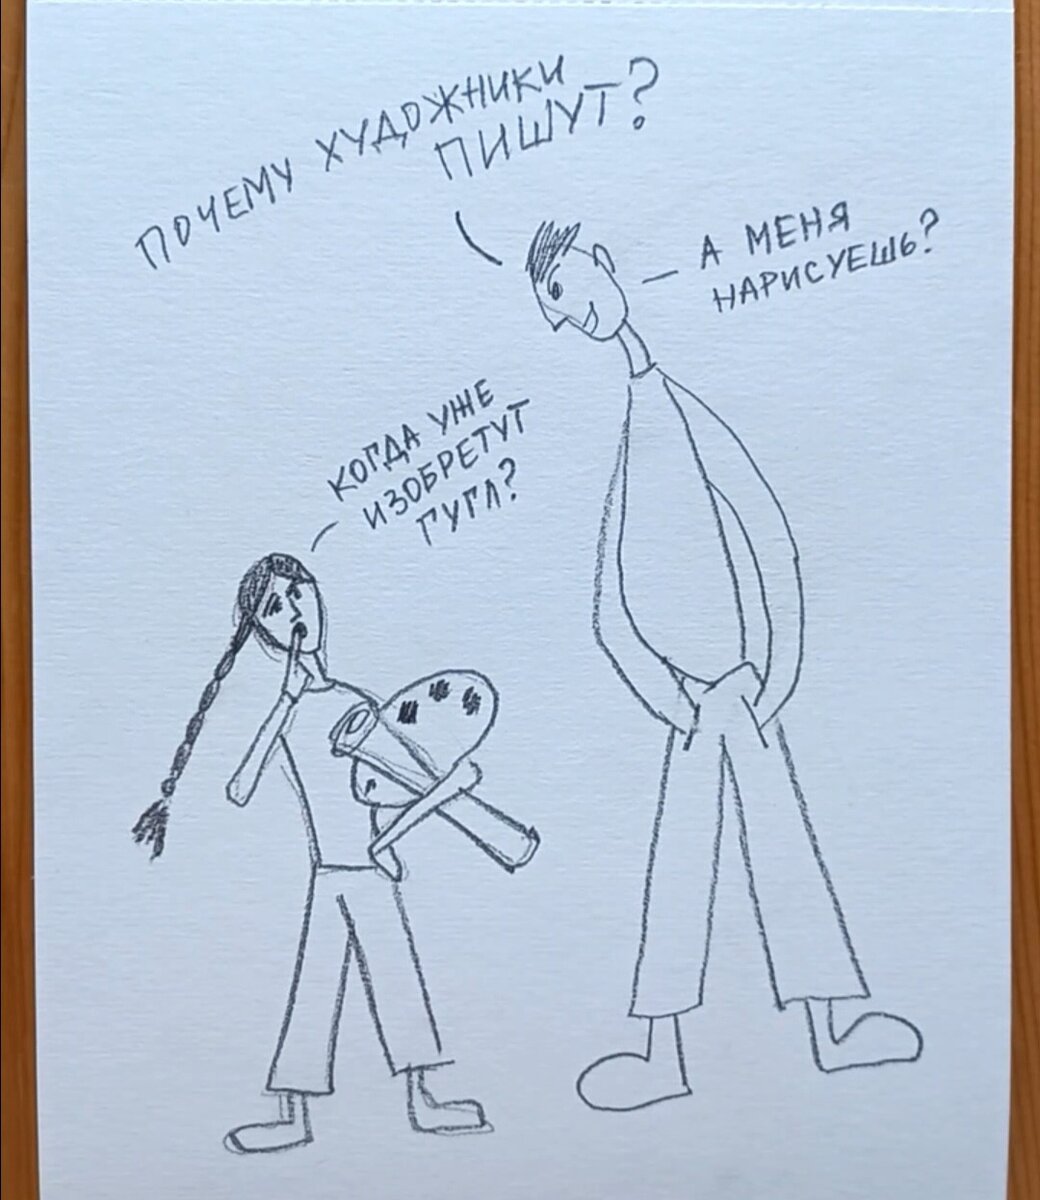 ПОЧЕМУ ХУДОЖНИКИ
ПИШУТ?
А МЕНЯ
НАРИСУЕШЬ?
КОГДА УЖЕ
ИЗОБРЕТУТ
ГУГЛ?